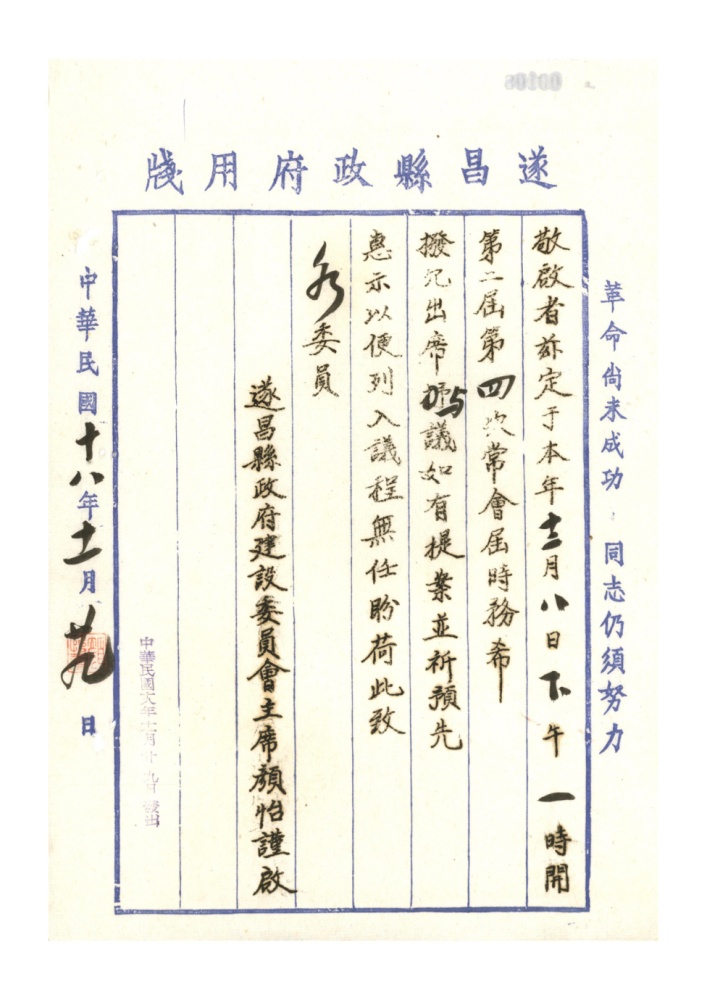 遂昌縣政府用牋
革命尚未成功　同志仍須努力
敬啟者茲定于本年十二月八日下午一時開
第二屆第四次常會屆時務希
撥冗出席與議如有提案並祈預先
惠示以便列入議程無任盼荷此致
各委員
遂昌縣政府建設委員會主席顏怡謹啟
中華民國十八年十一月廿九日發出
中華民國十八年十一月廿九日